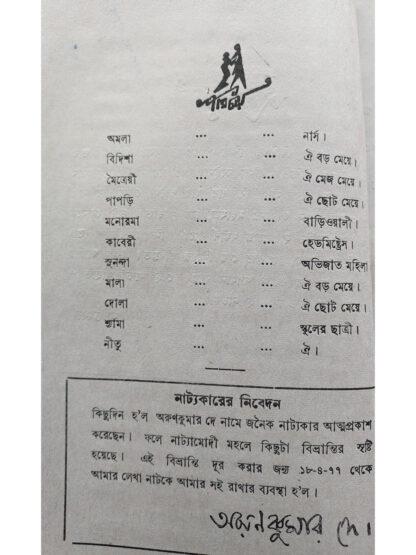 পরিচয়
অমলা ... ... নার্স।
বিদিশা ... ... ঐ বড় মেয়ে।
মৈত্রেয়ী ... ... ঐ মেজ মেয়ে।
পাপড়ি ... ... ঐ ছোট মেয়ে।
মনোরমা ... ... বাড়িওয়ালী।
কাবেরী ... ... হেডমিষ্ট্রেস।
সুনন্দা ... ... অভিজাত মহিলা
মালা ... ... ঐ বড় মেয়ে।
দোলা ... ... ঐ ছোট মেয়ে।
শ্যামা ... ... স্কুলের ছাত্রী।
নীতু ... ... ঐ।
নাট্যকারের নিবেদন
কিছুদিন হ'ল অরুণকুমার দে নামে জনৈক নাট্যকার আত্মপ্রকাশ
করেছেন। ফলে নাট্যামোদী মহলে কিছুটা বিভ্রান্তির সৃষ্টি
হয়েছে। এই বিভ্রান্তি দূর করার জন্য ১৮-৪-৭৭ থেকে
আমার লেখা নাটকে আমার সই রাখার ব্যবস্থা হ'ল।
অরুণকুমার দে।